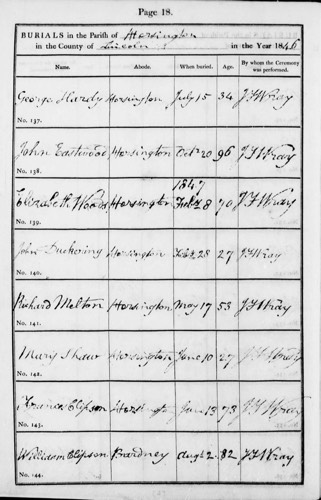 Page 18.
BURIALS in the Parish of Horsington
in the County of Lincoln in the Year 1846
Name. Abode. When buried. Age. By whom the Ceremony was performed.
George Hardy Horsington July 15 34 J F Wray
No. 137.
John Eastwood Horsington Oct 20 96 J F Wray
No. 138.
1847
Elizabeth Woods Horsington Feb 28 70 J F Wray
No. 139.
John Duckering Horsington Feb 28 27 J F Wray
No. 140.
Richard Melton Horsington May 17 53 J F Wray
No. 141.
Mary Shaw Horsington June 10 27 J F Wray
No. 142.
Frances Elipson Horsington June 13 73 J F Wray
No. 143.
William Elipson Bardney Augt 2 82 J F Wray
No. 144.